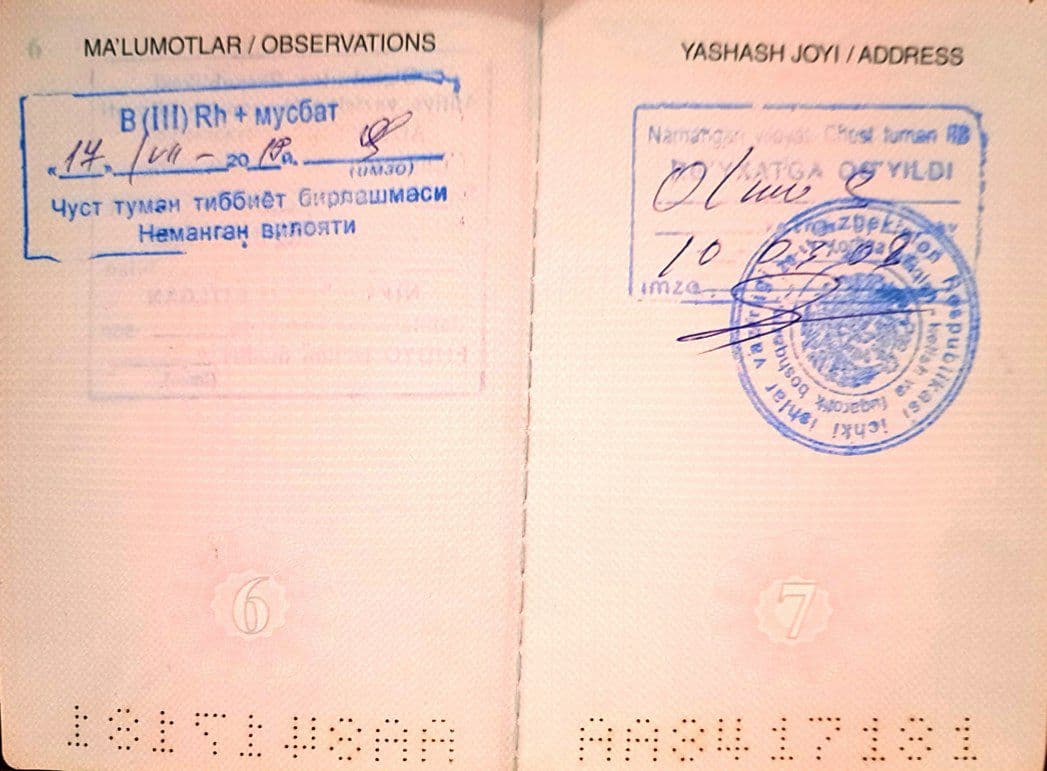 MA'LUMOTLAR / OBSERVATIONS
B (III) Rh + мусбат
«17» VII - 2018й.
(ИМЗО)
Чуст туман тиббиёт бирлашмаси
Неманган вилояти
6
YASHASH JOYI / ADDRESS
Namangan viloyati Chust tuman IIB
RO'YXATGA QO'YILDI
10 08
imzo
O'zbekiston Respublikasi ichki ishlar vazirligi
7
AA8417181